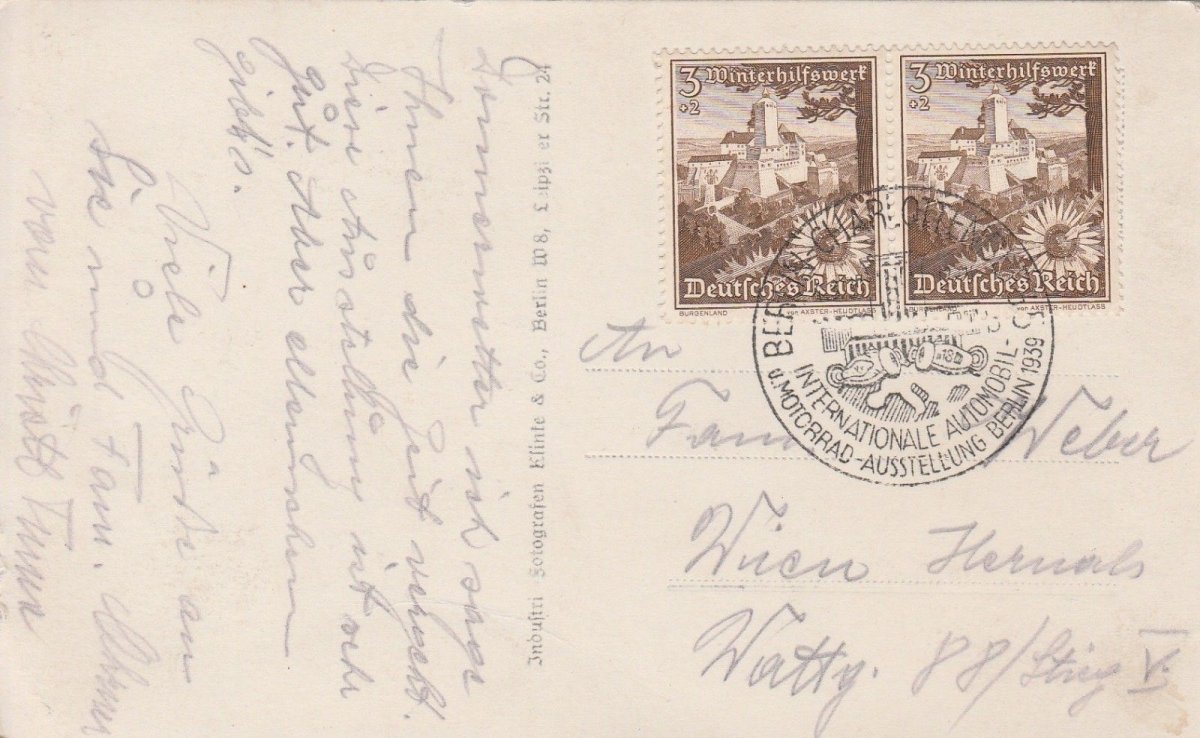 Sommerwetter ich sage
Ihnen die Zeit vergeht.
Die Ausstellung ist sehr
gut. Aber
gibt's.
Viele Grüße an
Sie und Fam.
vom
Industri Fotografen Klinke & Co., Berlin W 8, Leipzi er Str. 24
3 Winterhilfswerk
+2
Deutsches Reich
BURGENLAND von AXSTER-HEUDTLASS
3 Winterhilfswerk
+2
Deutsches Reich
BURGENLAND von AXSTER-HEUDTLASS
BERLIN-CHARLOTTENBURG
INTERNATIONALE AUTOMOBIL-
u. MOTORRAD-AUSSTELLUNG BERLIN 1939
An
Fam Weber
Wien Hernals
Wattg. 88/Stieg V.